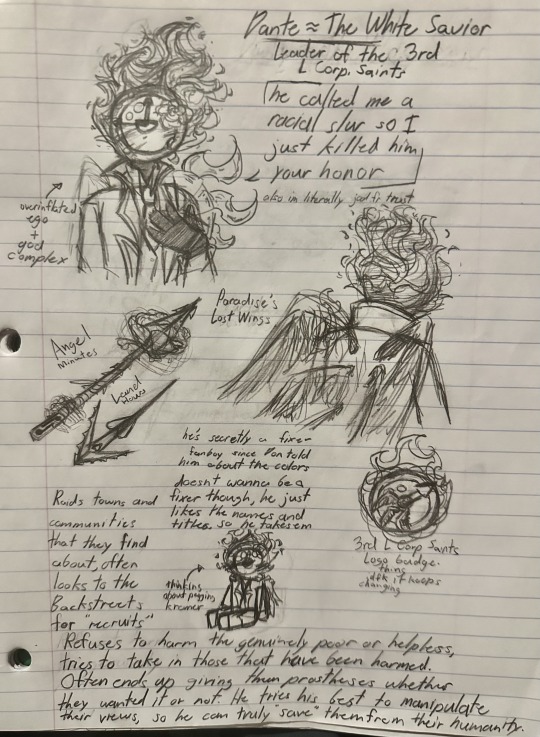 Dante ≈ The White Savior
Leader of the 3rd
L Corp. Saints
he called me a
racial slur so I
just killed him
your honor
overinflated
ego
+
god
complex
Paradise's
Lost Wings
Angel
Minutes
he's secretly a fixer
fanboy since Don told
him about the colors
doesnt wanna be a
fixer though, he just
likes the names and
titles so he takes em
Raids towns and
communities
that they find
about, often
looks to the
Backstreets
for "recruits"
thinking
about pegging
kromer
3rd L Corp Saints
Logo badge.
thing
idfk it keeps
changing
Refuses to harm the genuinely poor or helpless,
tries to take in those that have been harmed.
Often ends up giving them prostheses whether
they wanted it or not. He tries his best to manipulate
their views, so he can truly "save" them from their humanity.